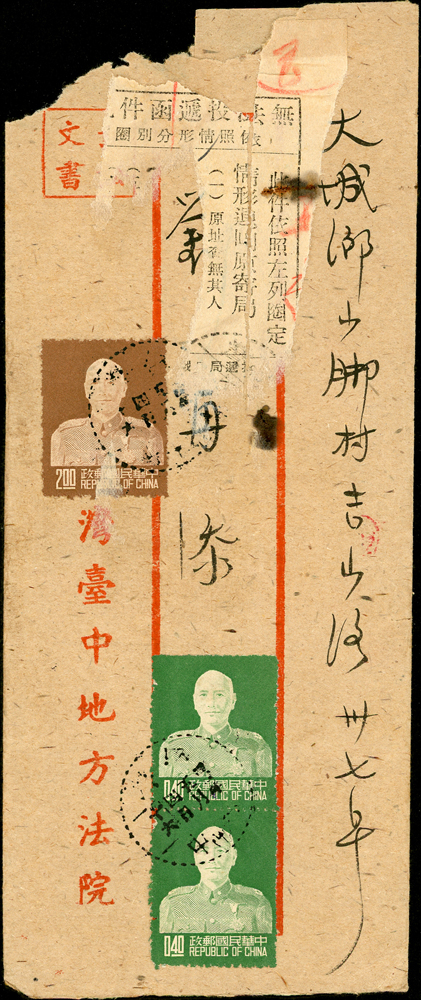 大城鄉山脚村吉山路卅七号
再添
無法投遞函件
依照情形分別圈
此件依照左列圈定
情形退回原寄局
(一)原址查無其人
投遞局
文
書
灣臺中地方法院
2.00
政郵國民華中
REPUBLIC OF CHINA
0.40
政郵國民華中
REPUBLIC OF CHINA
0.40
政郵國民華中
REPUBLIC OF CHINA